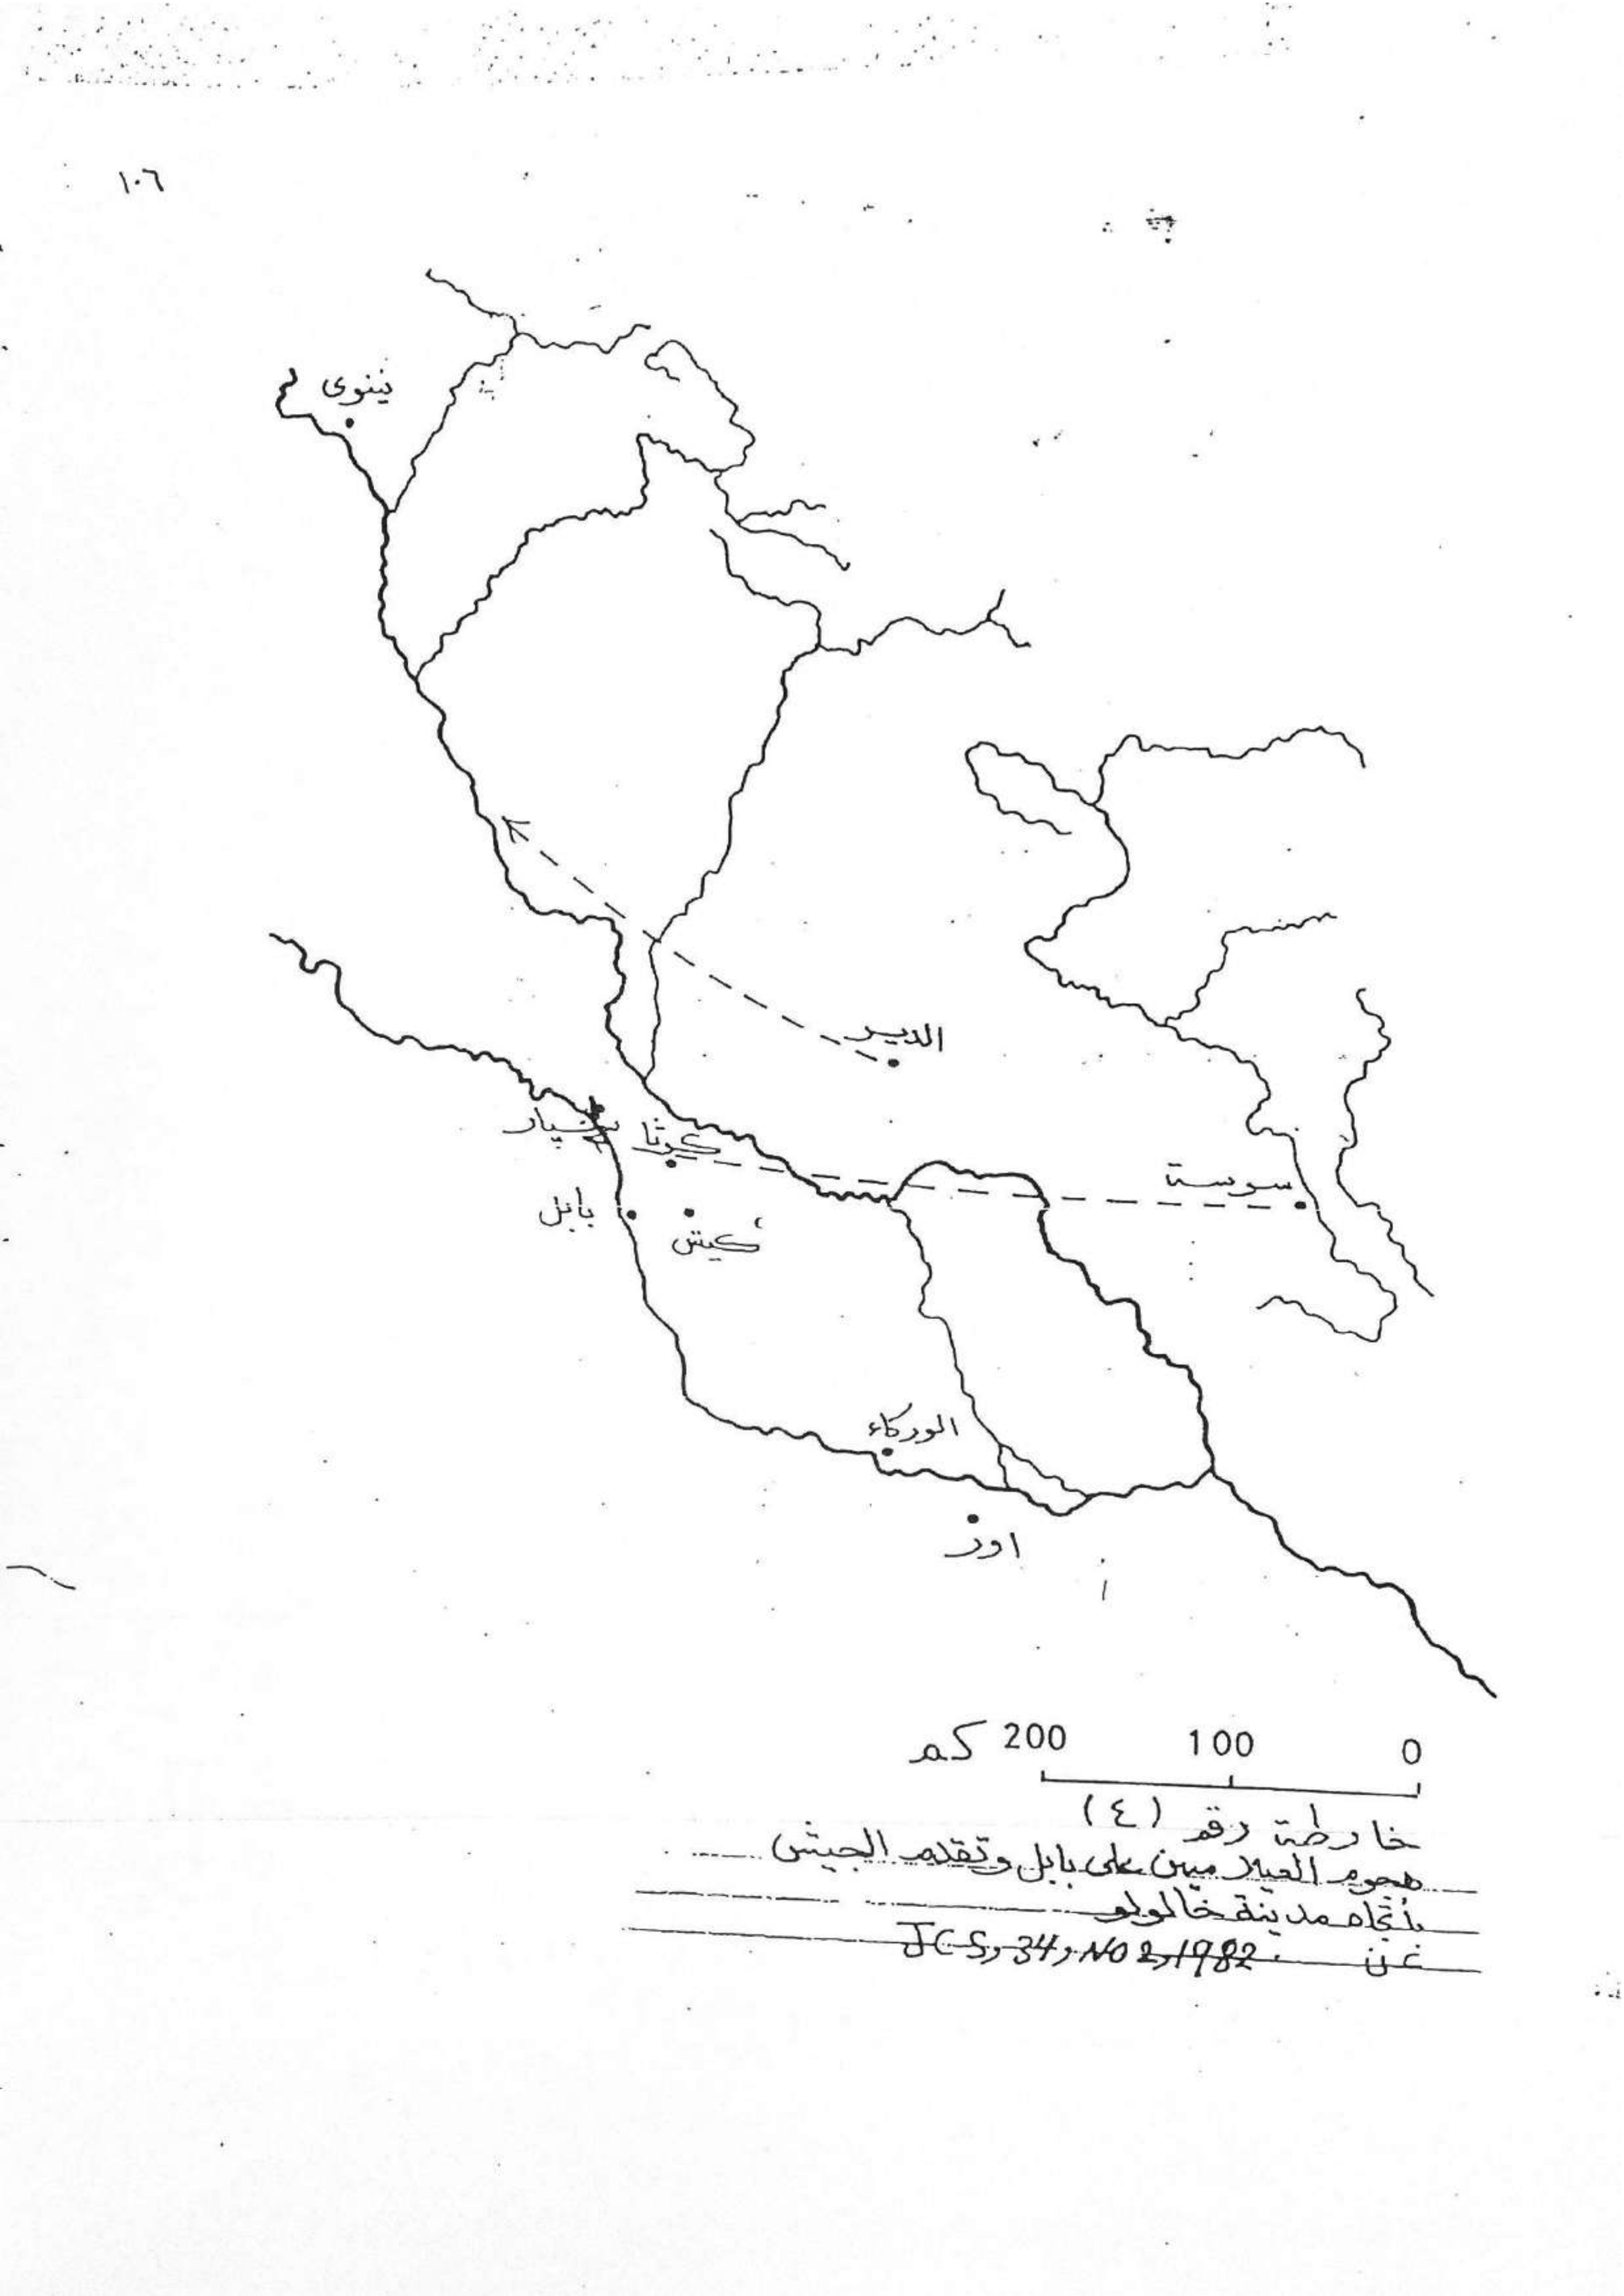 ١٠٦
نينوى
الدير
سيبار
كوثا
سوسة
بابل
كيش
الوركاء
اور
كم 200 100 0
خارطة رقم (٤)
هجوم العيلاميين على بابل وتقدم الجيش
باتجاه مدينة خالولو
عن JCS, 34, NO 2, 1982